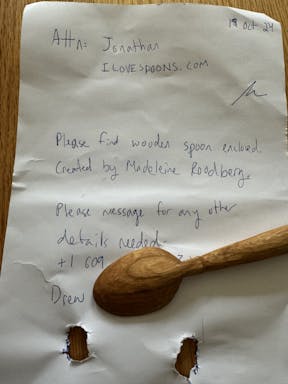 18 Oct. 24
Attn: Jonathan
ILOVESPOONS.COM
Please find wooden spoon enclosed.
Created by Madeleine Roodberg.
Please message for any other
details needed
+1 609
Drew